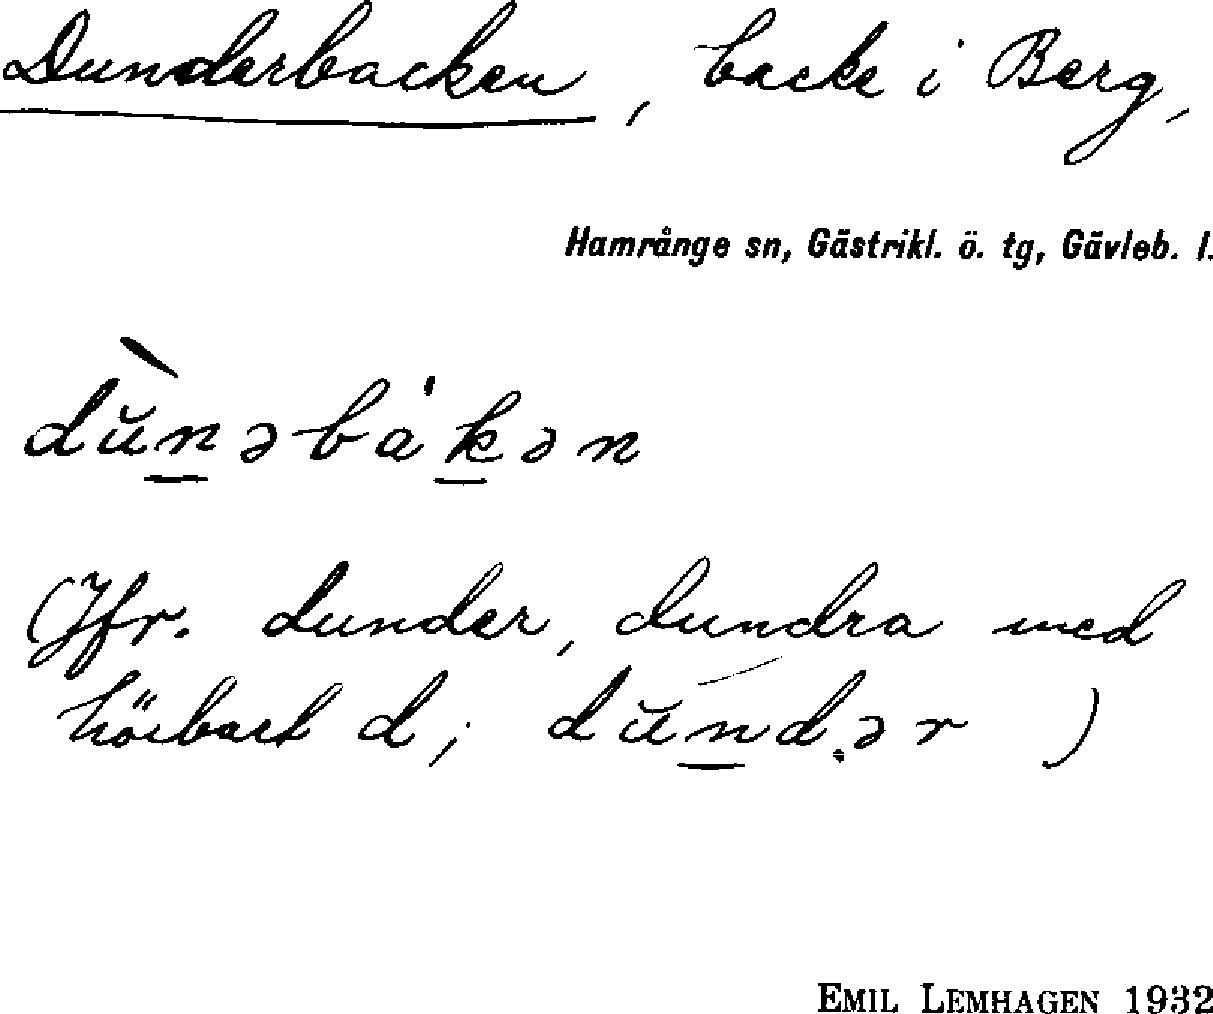 Dunderbacken, backe i Berg,
Hamrånge sn, Gästrikl. ö. tg, Gävleb. l.
dŭ̀n̲əbàk̲ən
(Jfr. dunder, dundra med
hörbart d; dŭn̲d.ər )
EMIL LEMHAGEN 1932